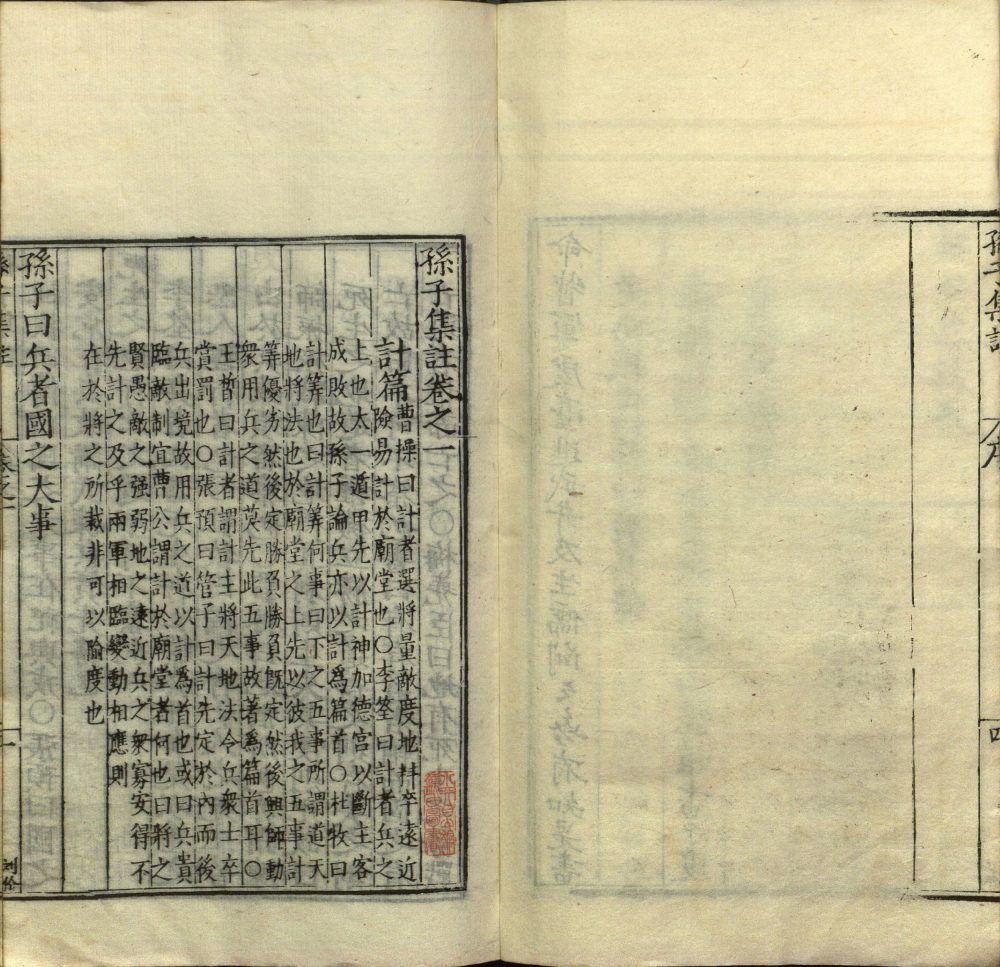 孫子集註
序
四
孫子集註卷之一
計篇
曹操曰計者選將量敵度地料卒遠近
險易計於廟堂也○李筌曰計者兵之
上也太一遁甲先以計神加德宮以斷主客
成敗故孫子論兵亦以計爲篇首○杜牧曰
計筭也曰計筭何事曰下之五事所謂道天
地將法也於廟堂之上先以彼我之五事計
筭優劣然後定勝負勝負旣定然後興師動
衆用兵之道莫先此五事故著爲篇首耳○
王晳曰計者謂計主將天地法令兵衆士卒
賞罰也○張預曰管子曰計先定於內而後
兵出境故用兵之道以計爲首也或曰兵貴
臨敵制宜曹公謂計於廟堂者何也曰將之
賢愚敵之強弱地之遠近兵之衆寡安得不
先計之及乎兩軍相臨變動相應則
在於將之所裁非可以隃度也
孫子曰兵者國之大事
孫子集註
卷之一
一